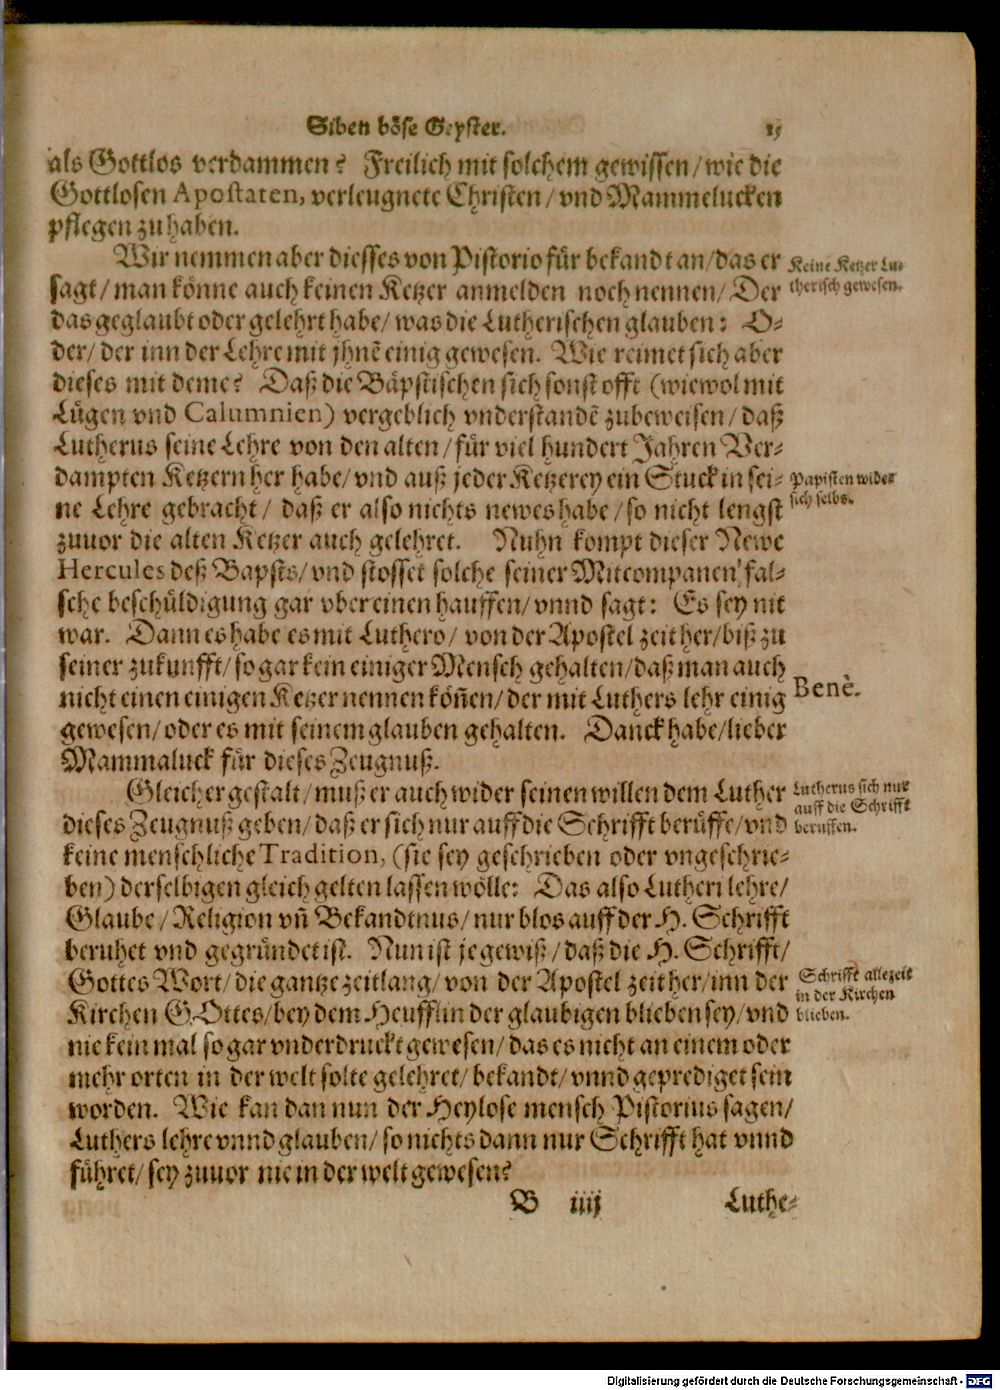 Siben böse Geyster. 15
als Gottlos verdammen? Freilich mit solchem gewissen/ wie die
Gottlosen Apostaten, verleugnete Christen/ vnd Mammelucken
pflegen zu haben.
Wir nemmen aber diesses von Pistorio für bekandt an/ das er
sagt/ man könne auch keinen Ketzer anmelden noch nennen/ Der
das geglaubt oder gelehrt habe/ was die Lutherischen glauben: O-
der/ der inn der Lehre mit jhnē einig gewesen. Wie reimet sich aber
dieses mit deme? Daß die Bäpstischen sich sonst offt (wiewol mit
Lügen vnd Calumnien) vergeblich vnderstandē zubeweisen/ daß
Lutherus seine Lehre von den alten/ für viel hundert Jahren Ver-
dampten Ketzern her habe/ vnd auß jeder Ketzerey ein Stuck in sei-
ne Lehre gebracht/ daß er also nichts newes habe/ so nicht lengst
zuuor die alten Ketzer auch gelehret. Nuhn kompt dieser Newe
Hercules deß Bapsts/ vnd stosset solche seiner Mitcompanen fal-
sche beschüldigung gar vber einen hauffen/ vnnd sagt: Es sey nit
war. Dann es habe es mit Luthero/ von der Apostel zeit her/ biß zu
seiner zukunfft/ so gar kein einiger Mensch gehalten/ daß man auch
nicht einen einigen Ketzer nennen köñen/ der mit Luthers lehr einig
gewesen/ oder es mit seinem glauben gehalten. Danck habe/ lieber
Mammaluck für dieses Zeugnuß.
Gleicher gestalt/ muß er auch wider seinen willen dem Luther
dieses Zeugnuß geben/ daß er sich nur auff die Schrifft berüffe/ vnd
keine menschliche Tradition, (sie sey geschrieben oder vngeschrie-
ben) derselbigen gleich gelten lassen wölle: Das also Lutheri lehre/
Glaube/ Religion vñ Bekandtnus/ nur blos auff der H. Schrifft
beruhet vnd gegründet ist. Nun ist je gewiß/ daß die H. Schrifft/
Gottes Wort/ die gantze zeitlang/ von der Apostel zeit her/ inn der
Kirchen GOttes/ bey dem Heufflin der glaubigen blieben sey/ vnd
nie kein mal so gar vnderdruckt gewesen/ das es nicht an einem oder
mehr orten in der welt solte gelehret/ bekandt/ vnnd geprediget sein
worden. Wie kan dan nun der Heylose mensch Pistorius sagen/
Luthers lehre vnnd glauben/ so nichts dann nur Schrifft hat vnnd
führet/ sey zuuor nie in der welt gewesen?
B iiij Luthe-
Keine Ketzer Lu-
therisch gewesen.
Papisten wider
sich selbs.
Benè.
Lutherus sich nur
auff die Schrifft
beruffen.
Schrifft allezeit
in der Kirchen
blieben.
Digitalisierung gefördert durch die Deutsche Forschungsgemeinschaft - DFG